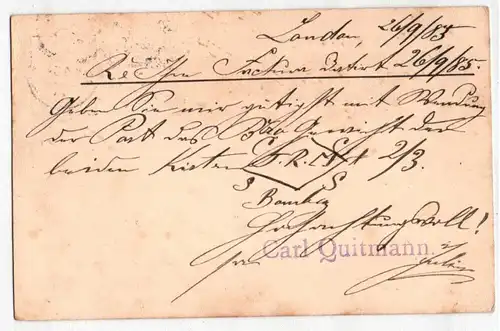 London, 26/9/85
Re Ihre Factura datirt 26/9/85.
Geben Sie mir gütigst mit Wendung
der Post das Gewicht der
beiden Kisten 2/3.
S S
Bombay
Hochachtungsvoll!
pa Carl Quitmann.